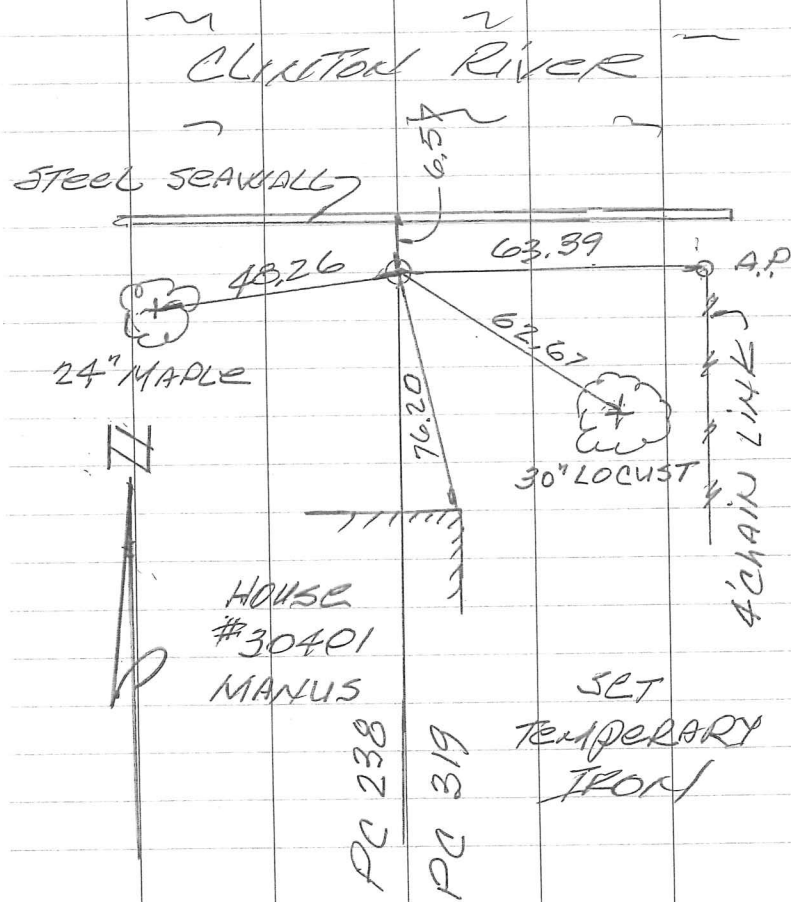 CLINTON RIVER
6.54
STEEL SEAWALL
48.26
63.39
A.P.
24" MAPLE
62.67
76.20
30" LOCUST
4' CHAIN LINK
N
HOUSE
#30401
MANUS
SET
TEMPERARY
IRON
PC 238
PC 319